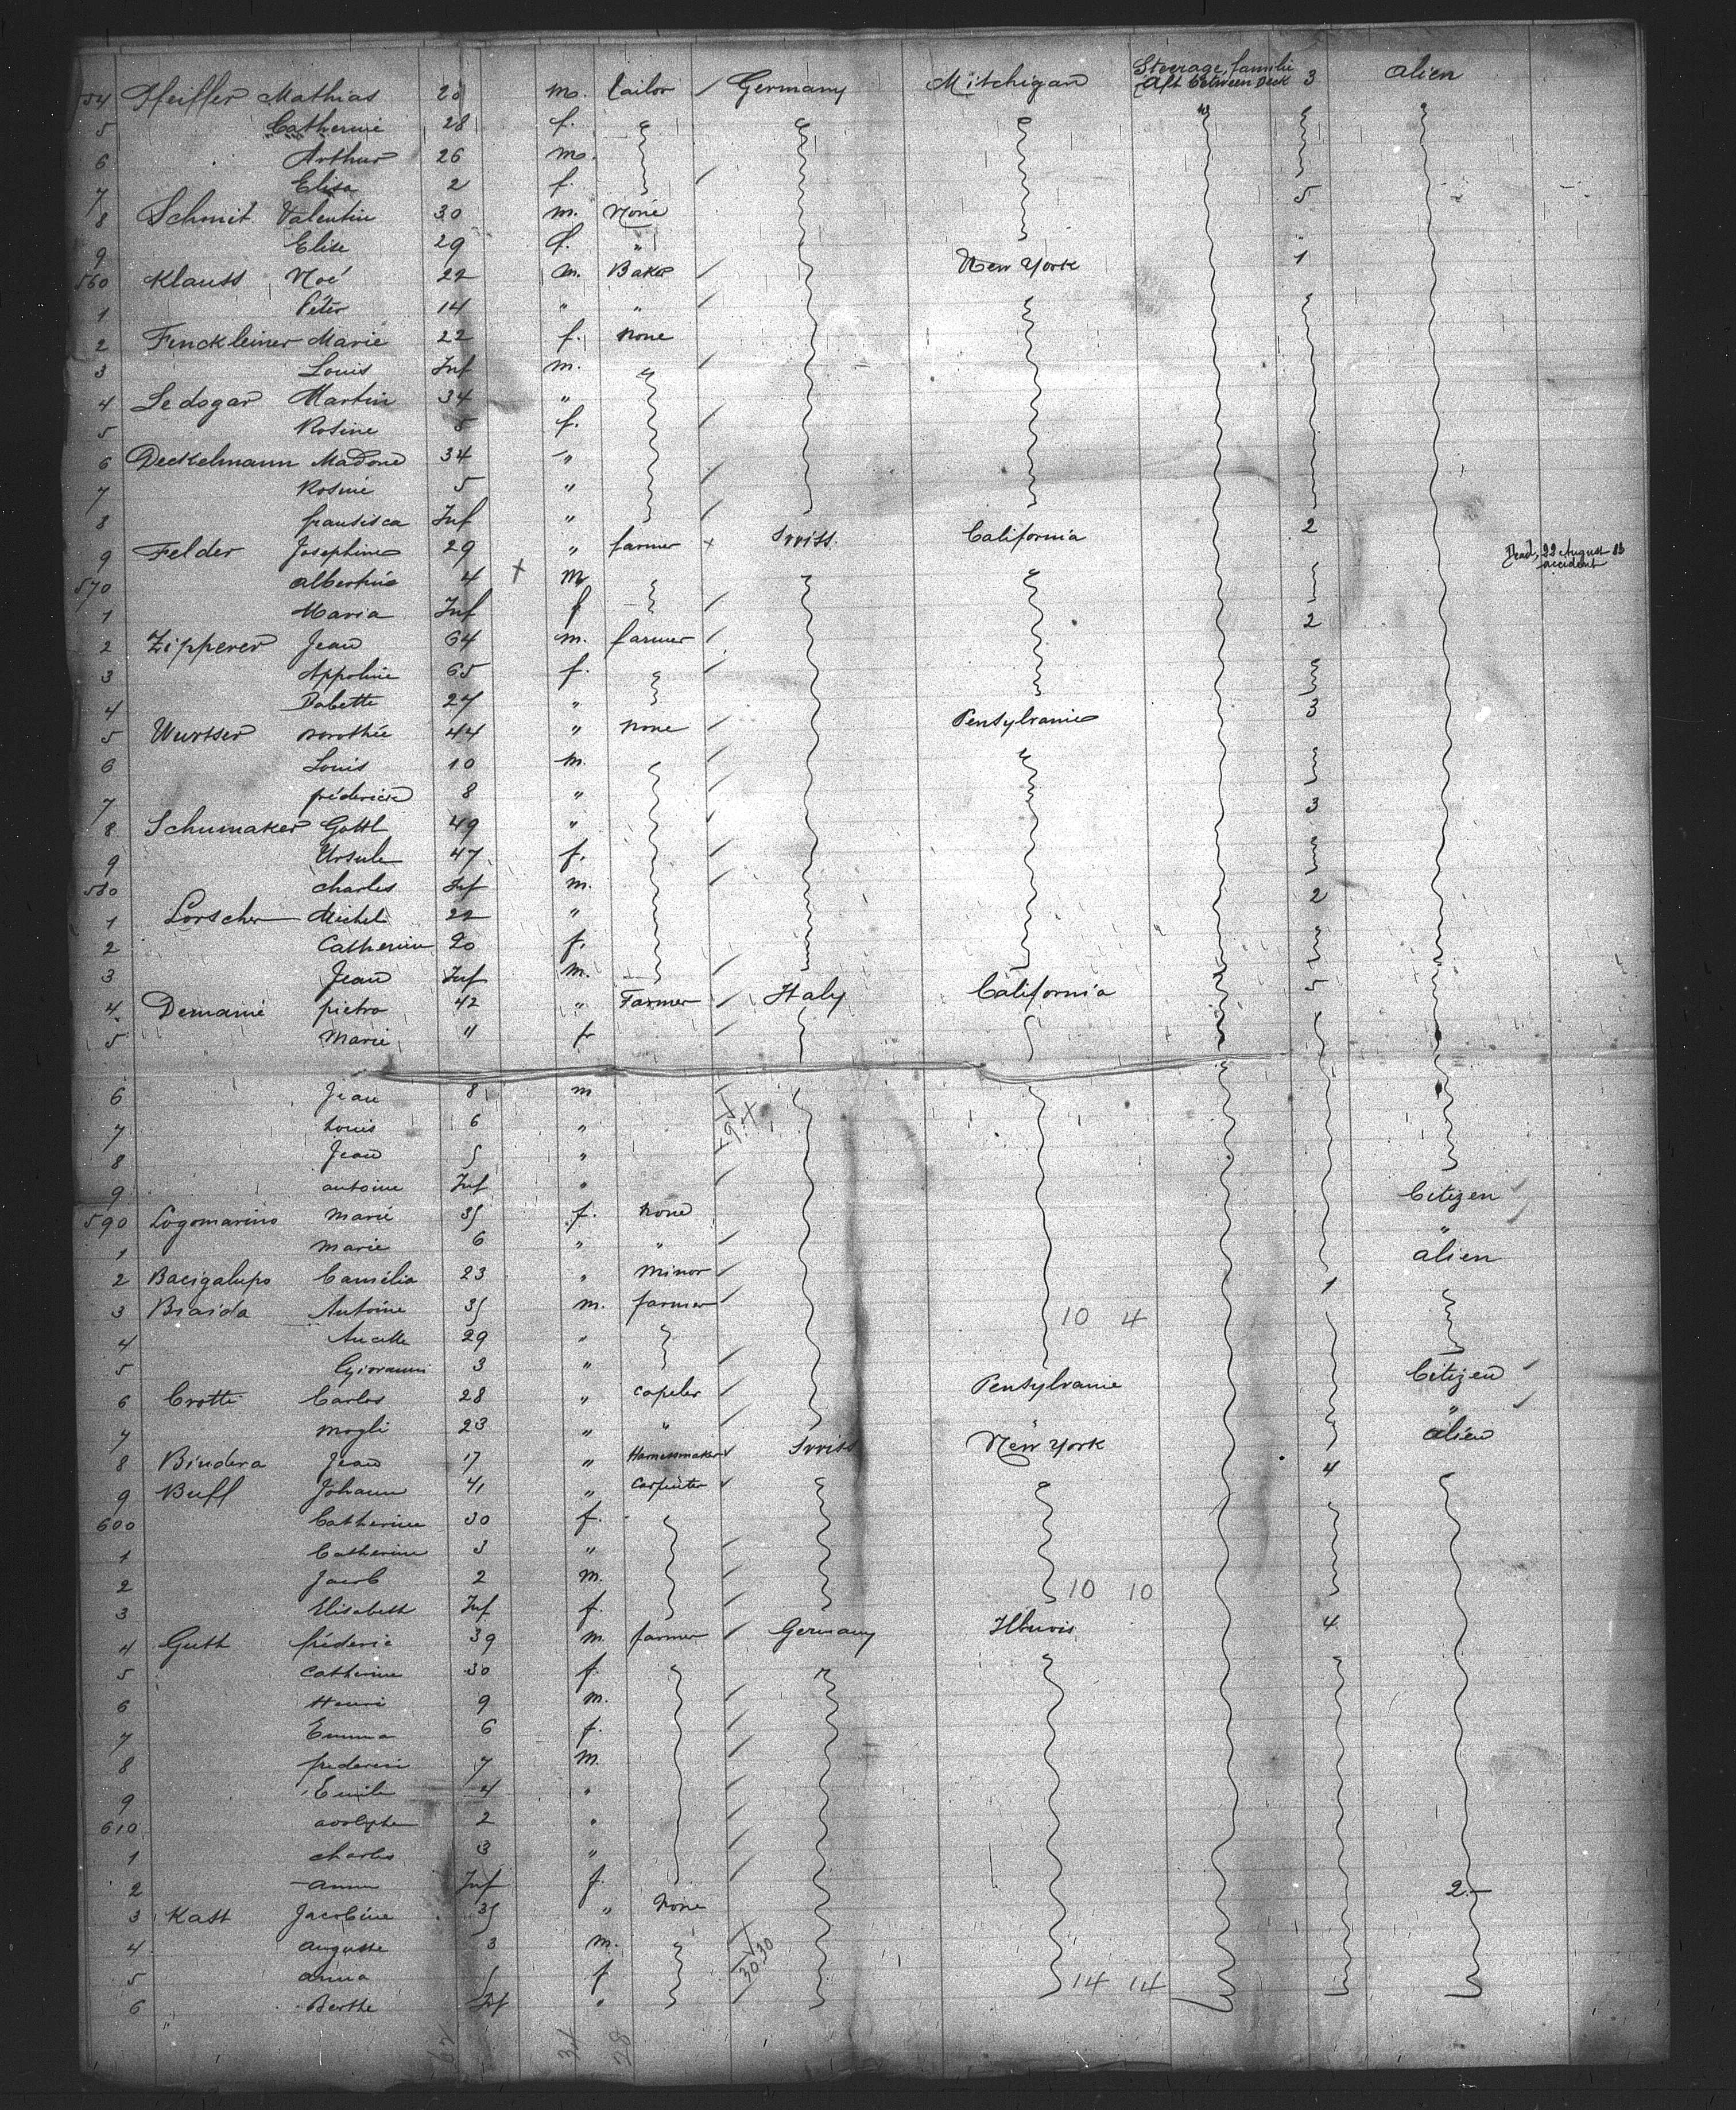 554 Pfeiffer Mathias 28 m. tailor Germany Mitchigan Steerage, familie Aft between Deck 3 alien
5 Catherine 28 f.
6 Arthur 26 m.
7 Elisa 2 f.
8 Schmit Valentin 30 m. None 5
9 Elise 29 f. "
560 Klauss Noé 22 m. Baker New York 1
1 Péter 14 " "
2 Fenckleiner Marie 22 f. none
3 Louis Inf m.
4 Ledogar Martin 34 "
5 Rosine 5 f.
6 Deckelmann Madone 34 "
7 Rosine 5 "
8 fransisca Inf "
9 Felder Josephine 29 " farmer x Swiss. California 2 Dead, 22 August 83 accident
570 albertine 4 x m
1 Maria Inf f
2 Zipperer Jean 64 m. farmer 2
3 Appoline 65 f.
4 Babette 27 "
5 Wurtser Dorothée 44 " none Pensylvanie 3
6 Louis 10 m.
7 fréderick 8 "
8 Schumaker Gottl 49 " 3
9 Ursule 47 f.
580 charles Inf m.
1 Lorscher Michel 22 " 2
2 Catherine 20 f.
3 Jean Inf m.
4 Demarié pietro 42 " Farmer Italy California 5
5 Marie " f
6 Jean 8 m
7 Louis 6 "
8 Jean 5 "
9 antoine Inf "
590 Logomarino Marie 35 f. none Citizen
1 Marie 6 " " "
2 Bacigalupo Camélia 23 " minor alien
3 Biaida Antoine 35 m. farmer 10 4 1
4 29 "
5 Giovanni 3 "
6 Crotti Carlos 28 " Pensylvanie Citizen
7 mogli 23 " " " "
8 Bindera Jean 17 " Harnessmaker Swiss New York alien
9 Buff Johann 41 " Carpenter 4
600 Catherine 30 f.
1 Catherine 3 "
2 Jacob 2 m.
3 Elisabeth Inf f. 10 10
4 Guth fréderic 39 m. farmer Germany Illinois 4
5 Catherine 30 f.
6 Henri 9 m.
7 Emma 6 f.
8 frederic 7 m.
9 Emile 4 "
610 adolphe 2 "
1 charles 3 "
2 anna Inf f.
3 Kast Jacobine 35 " none 2.-
4 auguste 3 m. 30 30
5 anna 5 f 14 14
6 Berthe Inf "
62 34 28